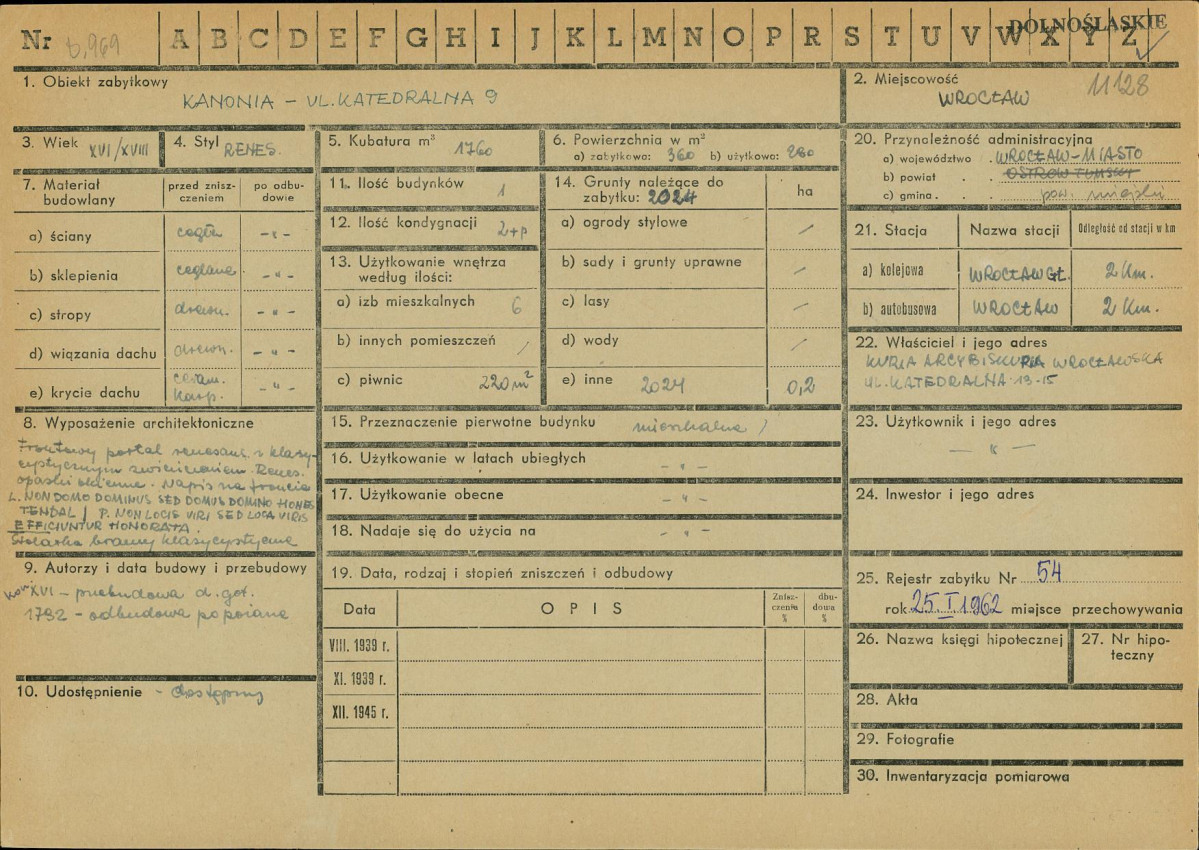 Nr 6,969 A B C D E F G H I J K L M N O P R S T U V W X Y Z DOLNOŚLĄSKIE
1. Obiekt zabytkowy
KANONIA – UL. KATEDRALNA 9
2. Miejscowość 11128
WROCŁAW
3. Wiek XVI/XVIII
4. Styl RENES.
5. Kubatura m³ 1760
6. Powierzchnia w m²
a) zabytkowa: 360 b) użytkowa: 280
7. Materiał budowlany
przed zniszczeniem
po odbudowie
a) ściany cegła –„–
b) sklepienia ceglane –„–
c) stropy drewn. –„–
d) wiązania dachu drewn. –„–
e) krycie dachu ceram. karp. –„–
8. Wyposażenie architektoniczne
Frontowy portal renesans. z klasy-
cystycznym zwieńczeniem. Renes.
opaski okienne. Napis na froncie
L. NON DOMO DOMINUS SED DOMUS DOMINO HONES
TENDAL / P. NON LOCIS VIRI SED LOCA VIRIS
EFFICIUNTUR HONORATA.
Stolarka bramy klasycystyczna
9. Autorzy i data budowy i przebudowy
kon. XVI – przebudowa d. got.
1792 – odbudowa po pożarze
10. Udostępnienie – dostępny
11. Ilość budynków 1
12. Ilość kondygnacji 2+p
13. Użytkowanie wnętrza
według ilości:
a) izb mieszkalnych 6
b) innych pomieszczeń /
c) piwnic 220 m²
14. Grunty należące do
zabytku: 2024
ha
a) ogrody stylowe /
b) sady i grunty uprawne /
c) lasy /
d) wody /
e) inne 2024 0,2
15. Przeznaczenie pierwotne budynku mieszkalne
16. Użytkowanie w latach ubiegłych –„–
17. Użytkowanie obecne –„–
18. Nadaje się do użycia na –„–
19. Data, rodzaj i stopień zniszczeń i odbudowy
Data OPIS Znisz-
czenia
% dbu-
dowa
%
VIII. 1939 r.
XI. 1939 r.
XII. 1945 r.
20. Przynależność administracyjna
a) województwo . WROCŁAW-MIASTO
b) powiat . . OSTRÓW TUMSKI
c) gmina . . pow. miejski
21. Stacja Nazwa stacji Odległość od stacji w km
a) kolejowa WROCŁAW GŁ. 2 Km.
b) autobusowa WROCŁAW 2 Km.
22. Właściciel i jego adres
KURIA ARCYBISKUPIA WROCŁAWSKA
UL. KATEDRALNA 13-15
23. Użytkownik i jego adres
–„–
24. Inwestor i jego adres
25. Rejestr zabytku Nr 54
rok 25. I. 1962 miejsce przechowywania
26. Nazwa księgi hipotecznej
27. Nr hipo-
teczny
28. Akta
29. Fotografie
30. Inwentaryzacja pomiarowa